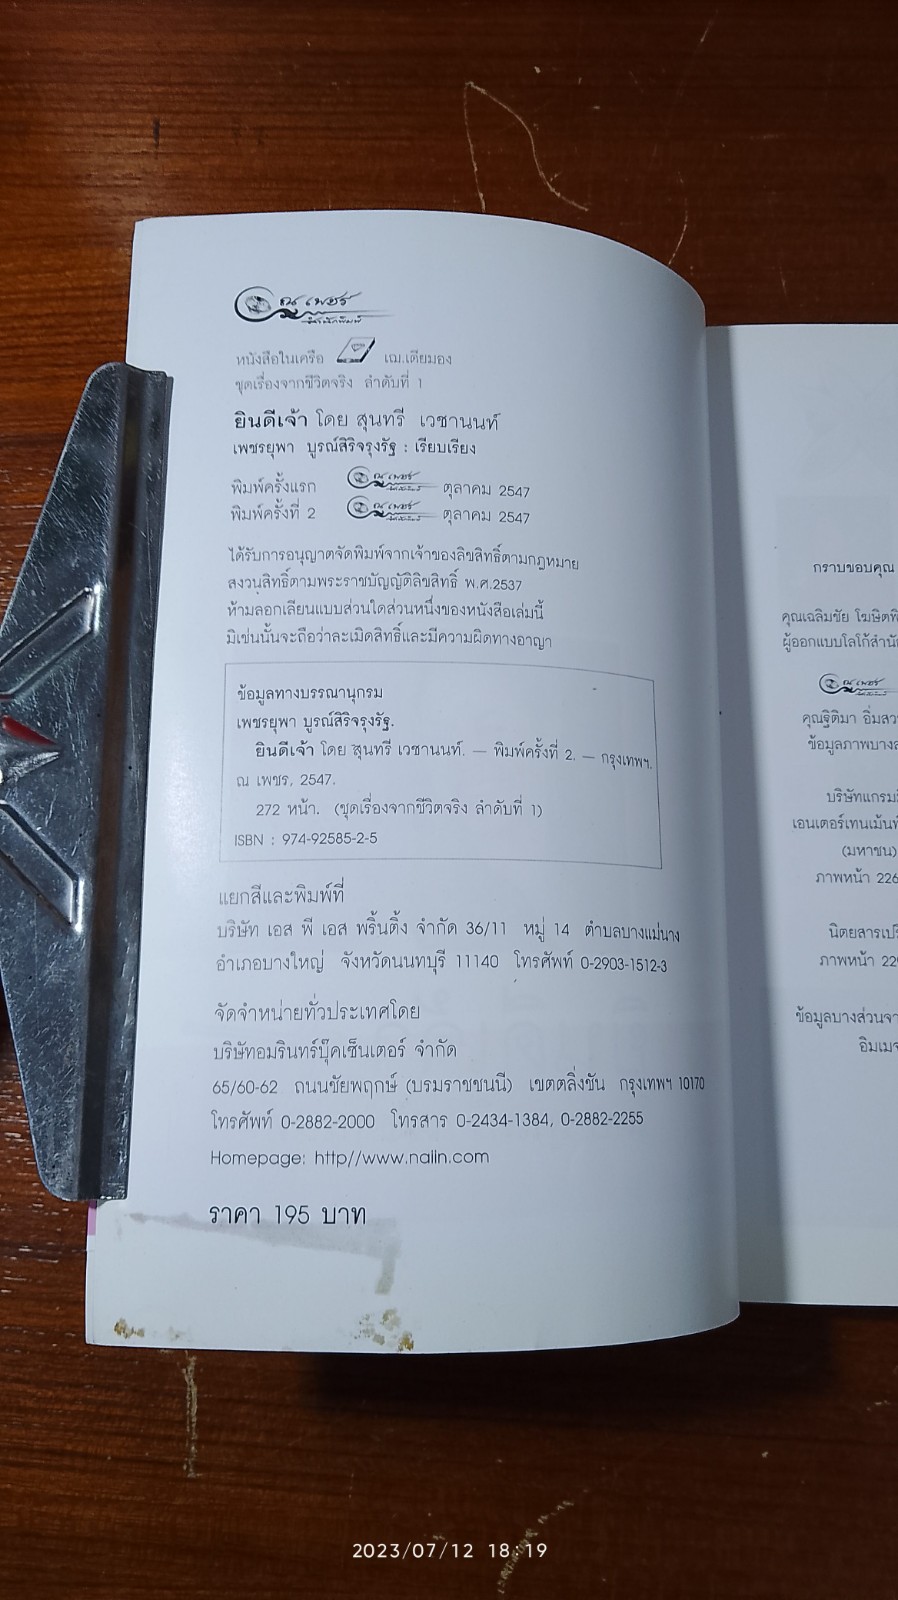 ณ เพชร
สำนักพิมพ์
หนังสือในเครือ เฌ.เดียมอง
ชุดเรื่องจากชีวิตจริง ลำดับที่ 1
ยินดีเจ้า โดย สุนทรี เวชานนท์
เพชรยุพา บูรณ์สิริจรุงรัฐ : เรียบเรียง
พิมพ์ครั้งแรก ณ เพชร ตุลาคม 2547
พิมพ์ครั้งที่ 2 ณ เพชร ตุลาคม 2547
ได้รับการอนุญาตจัดพิมพ์จากเจ้าของลิขสิทธิ์ตามกฎหมาย
สงวนสิทธิ์ตามพระราชบัญญัติลิขสิทธิ์ พ.ศ.2537
ห้ามลอกเลียนแบบส่วนใดส่วนหนึ่งของหนังสือเล่มนี้
มิเช่นนั้นจะถือว่าละเมิดสิทธิ์และมีความผิดทางอาญา
ข้อมูลทางบรรณานุกรม
เพชรยุพา บูรณ์สิริจรุงรัฐ.
ยินดีเจ้า โดย สุนทรี เวชานนท์. — พิมพ์ครั้งที่ 2. — กรุงเทพฯ.
ณ เพชร, 2547.
272 หน้า. (ชุดเรื่องจากชีวิตจริง ลำดับที่ 1)
ISBN : 974-92585-2-5
แยกสีและพิมพ์ที่
บริษัท เอส พี เอส พริ้นติ้ง จำกัด 36/11 หมู่ 14 ตำบลบางแม่นาง
อำเภอบางใหญ่ จังหวัดนนทบุรี 11140 โทรศัพท์ 0-2903-1512-3
จัดจำหน่ายทั่วประเทศโดย
บริษัทอมรินทร์บุ๊คเซ็นเตอร์ จำกัด
65/60-62 ถนนชัยพฤกษ์ (บรมราชชนนี) เขตตลิ่งชัน กรุงเทพฯ 10170
โทรศัพท์ 0-2882-2000 โทรสาร 0-2434-1384, 0-2882-2255
Homepage: http//www.naiin.com
ราคา 195 บาท
กราบขอบคุณ
คุณเฉลิมชัย โฆษิตพิ
ผู้ออกแบบโลโก้สำนัก
ณ เพชร
คุณฐิติมา อิ่มสว
ข้อมูลภาพบางส
บริษัทแกรมมี
เอนเตอร์เทนเม้นท์
(มหาชน)
ภาพหน้า 226
นิตยสารเปรี
ภาพหน้า 22
ข้อมูลบางส่วนจา
อิมเมจ
2023/07/12 18:19